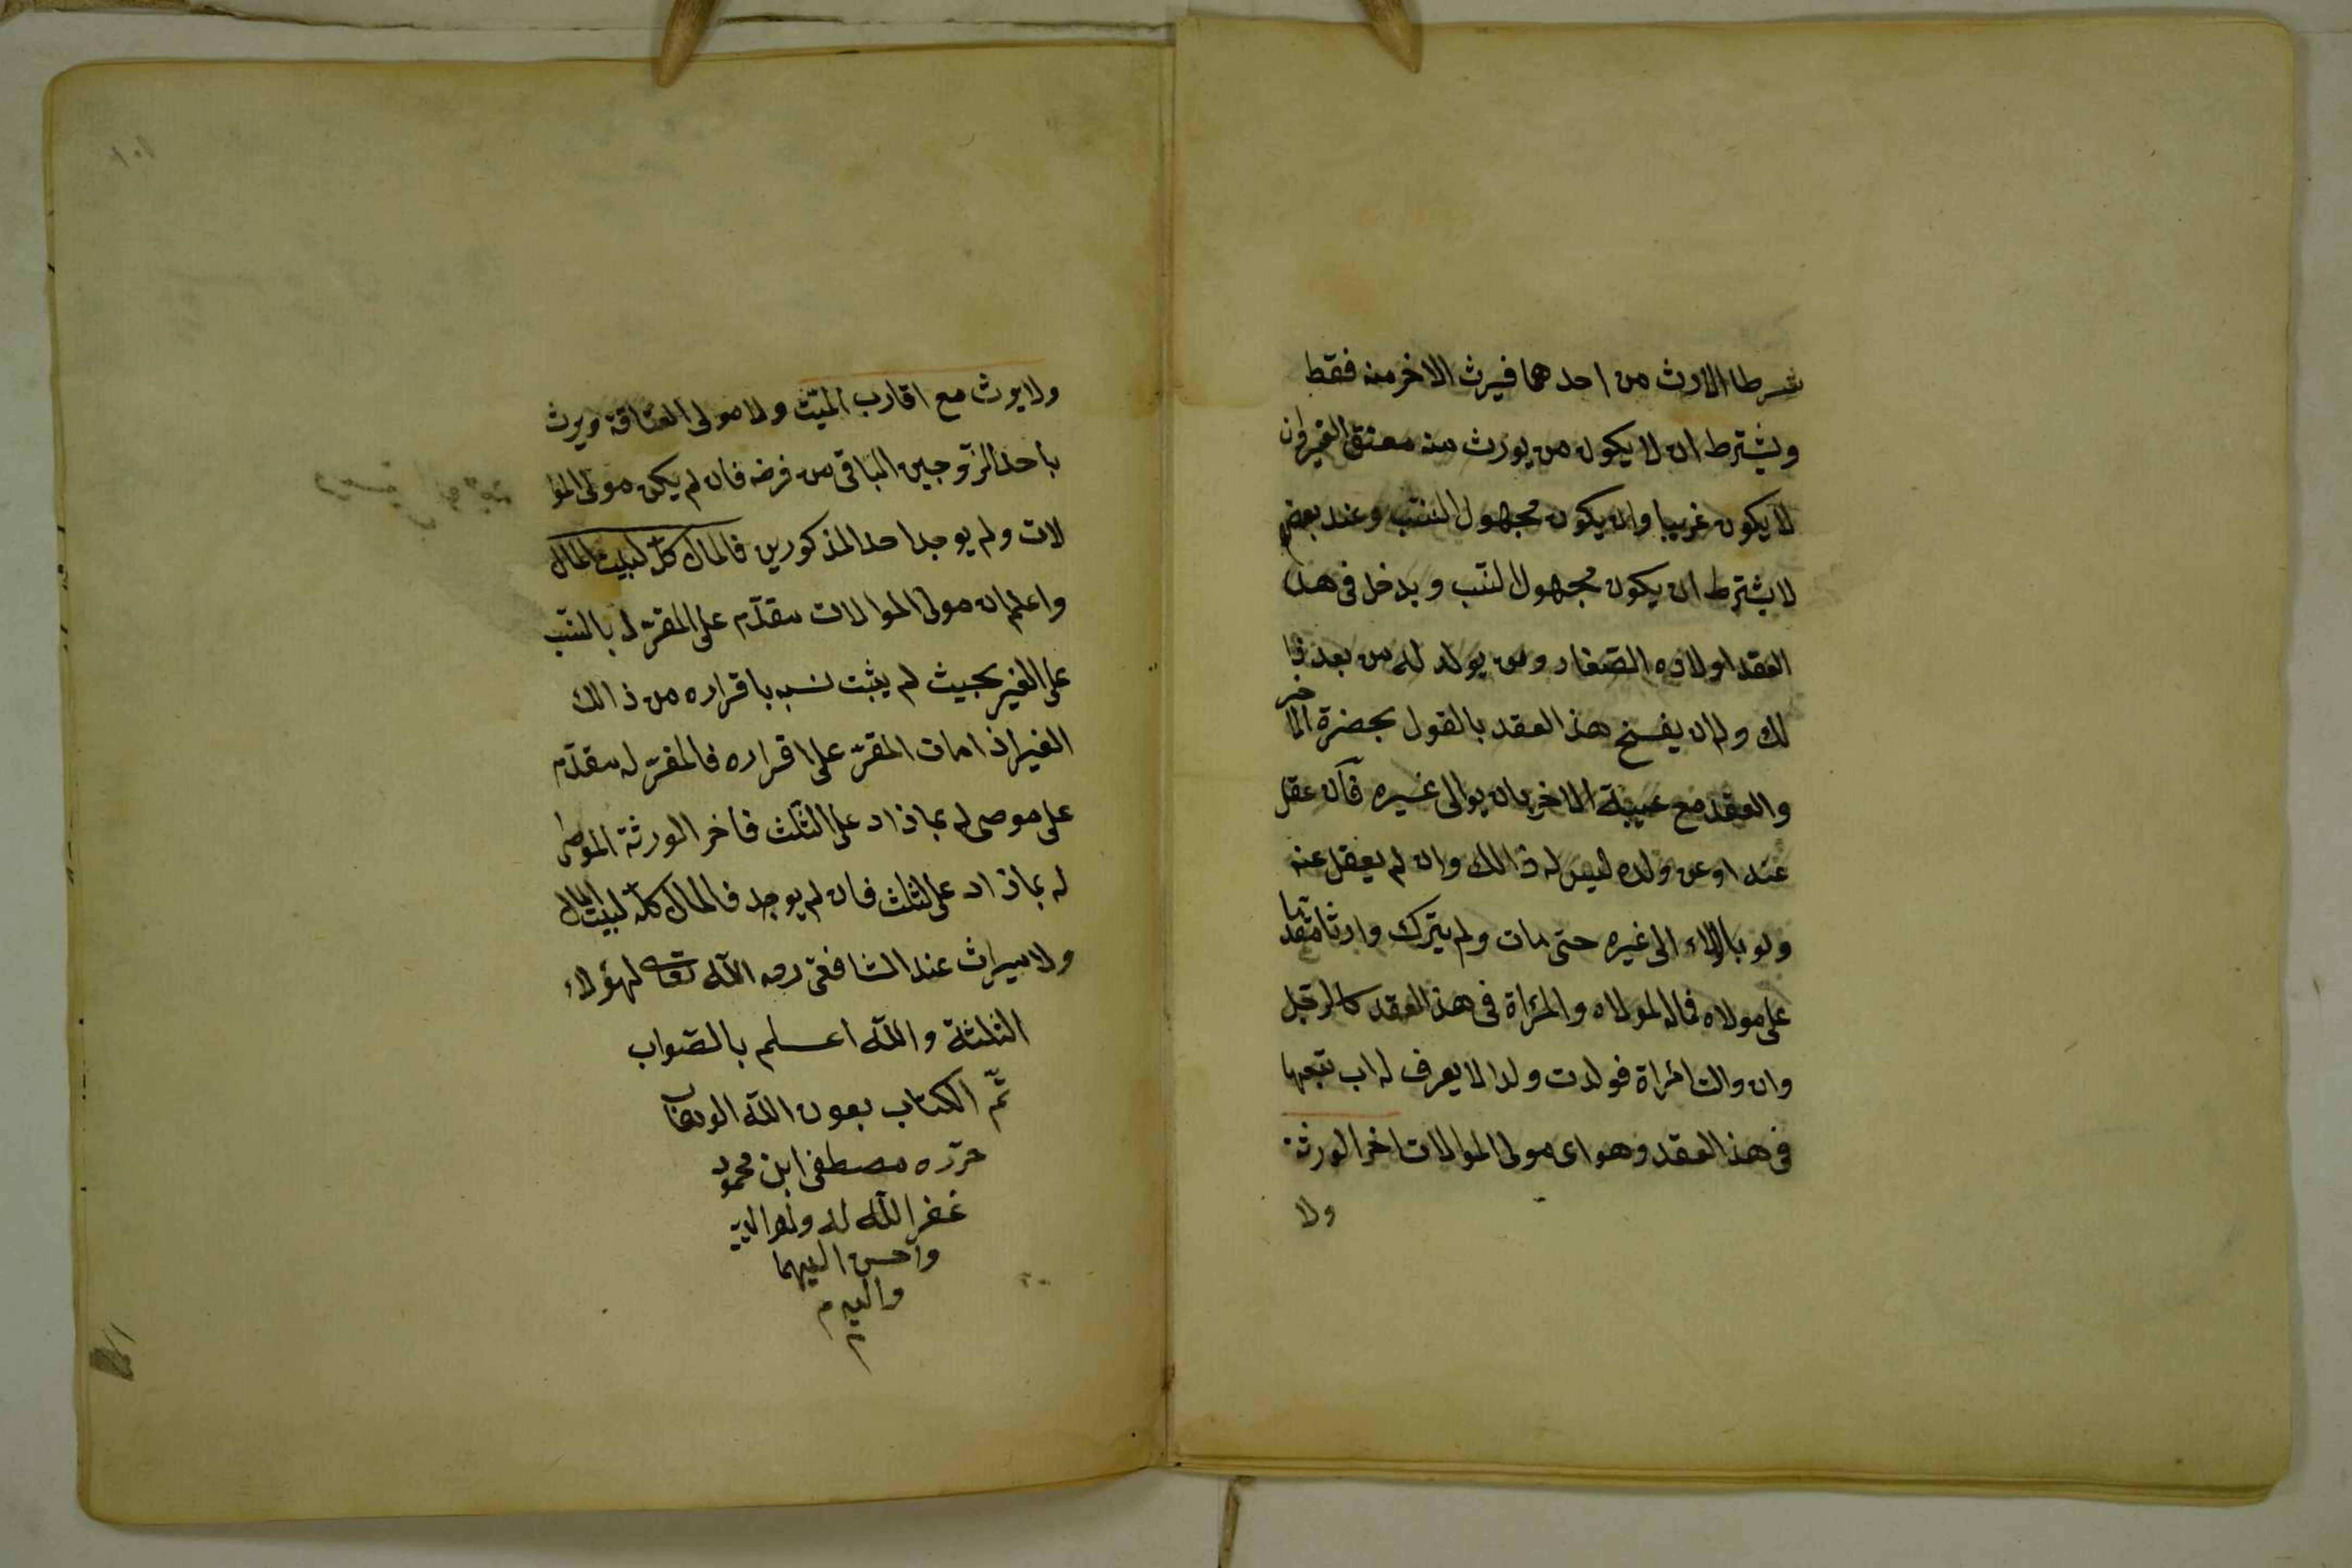 شرطا الارث من احدهما فيرث الاخر منه فقط
ويشترط ان لا يكون من يورث منه معتق الغير وان
لا يكون عربيا وان يكون مجهول النسب وعند بعض
لا يشترط ان يكون مجهول النسب ويدخل فى هذا
العقد اولاده الصغار ومن يولد له من بعد ذا
لك وله ان يفسخ هذ العقد بالقول بحضرة الاخر
والعقد مع غيبة الاخر بان يوالى غيره فان عقل
عنه او عن ولده ليس له ذالك وان لم يعقل عنه
ولو بالولاء الى غيره حتى مات ولم يترك وارثا مقدما
على مولاه فماله لمولاه والمرأة فى هذ العقد كالرجل
وان والت امرأة فولدت ولدا لا يعرف له اب تبعها
فى هذ العقد وهو اى مولى الموالات اخر الورثة
ولا
١٠١
ولا يورث مع اقارب الميت ولا مولى العتاقة ويرث
باحد الزوجين الباقى من فرضه فان لم يكن مولى الموا
لات ولم يوجد احد المذكورين فالمال كله لبيت المال
واعلم ان مولى الموالات مقدم على المقر له بالنسب
على الغير بحيث لم يثبت نسبه باقراره من ذالك
الغير اذا مات المقر على اقراره فالمقر له مقدم
على موصى له بما زاد على الثلث فاخر الورثة الموصى
له بما زاد على الثلث فان لم يوجد فالمال كله لبيت المال
ولا ميراث عند الشافعى رحمه الله تعالى لهؤلاء
الثلثة والله اعلم بالصواب
تم الكتاب بعون الله الوهاب
حرره مصطفى ابن محمود
غفر الله له ولوالديه
واحسن اليهما
واليه م
م